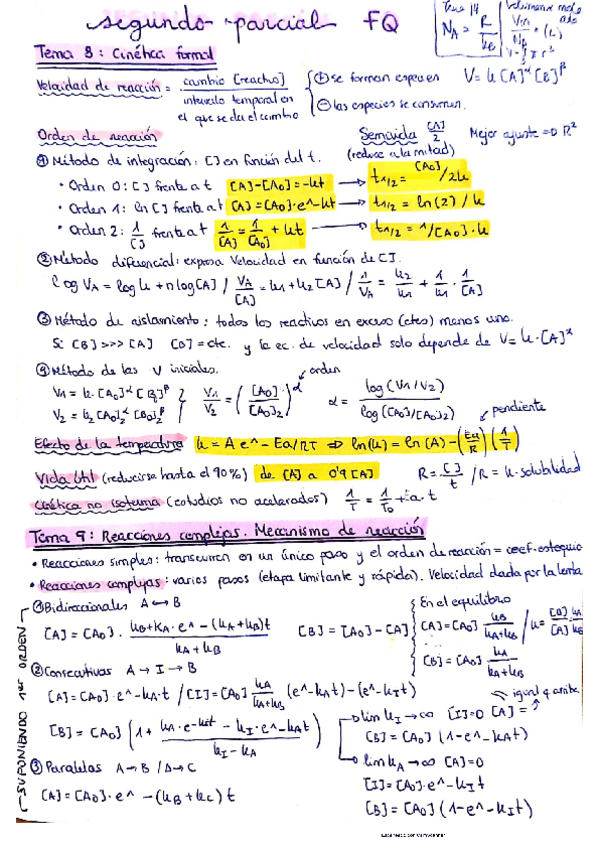 segundo parcial FQ
Tema 14
N_A = R/k_B
Volumen molecular
V_m/N_A = (L)
Tema 8: Cinética formal
Velocidad de reacción = cambio [reactivo] / intervalo temporal en el que se da el cambio
⊕ se forman especies
⊖ las especies se consumen.
V = k[A]^α [B]^β
Orden de reacción
Semivida [A]/2
(reduce a la mitad)
Mejor ajuste => R²
① Método de integración: [ ] en función del t.
• Orden 0: [ ] frente a t [A]-[A0] = -kt → t1/2 = [A0]/2k
• Orden 1: ln [ ] frente a t [A] = [A0]·e^-kt → t1/2 = ln(2)/k
• Orden 2: 1/[ ] frente a t 1/[A] = 1/[A0] + kt → t1/2 = 1/[A0]·k
② Metodo diferencial: expresa velocidad en función de [ ].
log V_A = log k + n log [A] / V_A/[A] = k1 + k2 [A] / 1/V_A = k2/k1 + 1/k1 · 1/[A]
③ Método de aislamiento: todos los reactivos en exceso (ctes) menos uno.
Si [B] >>> [A] [B] = cte. y la ec. de velocidad solo depende de V = k·[A]^α
④ Método de las V iniciales.
orden
V1 = k·[A0]^α [B]^β
V2 = k2[A0]2^α [B0]2^β
V1/V2 = ([A0]/[A0]2)^α
α = log(V1/V2) / log([A0]/[A0]2)
pendiente
Efecto de la temperatura k = A e^-Ea/RT => ln(k) = ln(A) - (Ea/R)(1/T)
Vida Útil (reducirse hasta el 90%) de [A] a 0'9 [A]
R = [ ]/t / R = k·solubilidad
Cinética no isoterma (estudios no acelerados) 1/T = 1/T0 + a·t
Tema 9: Reacciones complejas. Mecanismo de reacción
• Reacciones simples: transcurren en un único paso y el orden de reacción = coef. estequio
• Reacciones complejas: varios pasos (etapa limitante y rápida). Velocidad dada por la lenta
SUPONIENDO 1er ORDEN
① Bidireccionales A ↔ B
[A] = [A0] · kB + kA·e^-(kA+kB)t / kA+kB
[B] = [A0] - [A]
En el equilibrio
[A] = [A0] kB/kA+kB
[B] = [A0] kA/kA+kB
k = [B]/[A] kA/kB
② Consecutivas A → I → B
[A] = [A0]·e^-kA·t / [I] = [A0] kA/kA+kB (e^-kAt) - (e^-kIt)
[B] = [A0] (1 + kA·e^-kIt - kI·e^-kAt / kI - kA)
igual q arriba
lim kI → ∞ [I]=0 [A] =
[B] = [A0] (1-e^-kAt)
lim kA → ∞ [A]=0
[I] = [A0]·e^-kIt
[B] = [A0] (1-e^-kIt)
③ Paralelas A → B / A → C
[A] = [A0]·e^-(kB+kC)t